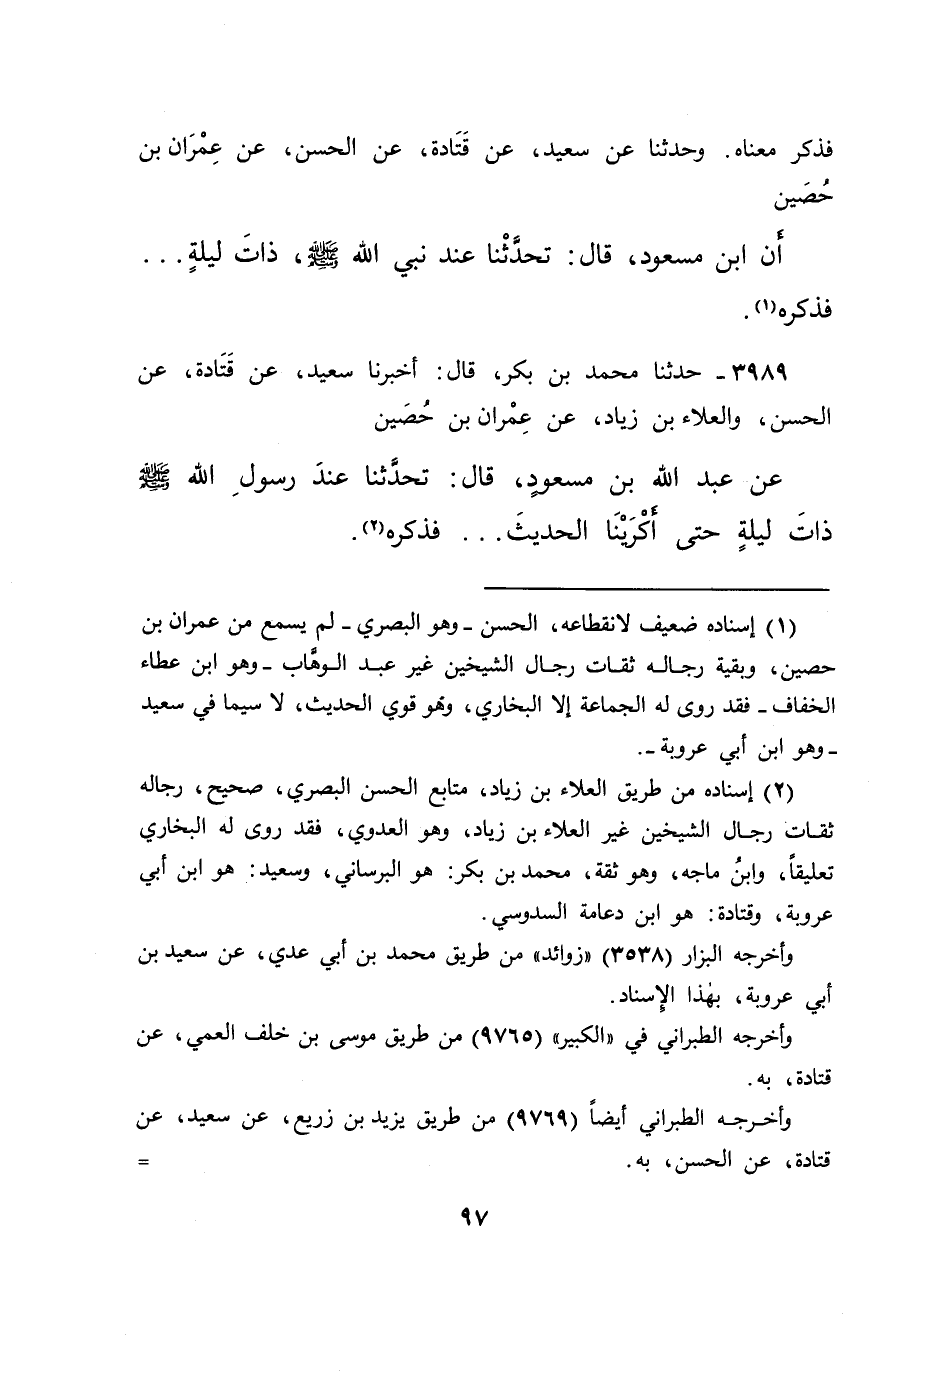 فذكر معناه. وحدثنا عن سعيد، عن قَتَادة، عن الحسن، عن عِمْرَان بن
حُصَين
أَن ابن مسعود، قال: تحدَّثْنا عند نبي الله ﷺ، ذاتَ ليلةٍ...
فذكره(١).
٣٩٨٩ـ حدثنا محمد بن بكر، قال: أخبرنا سعيد، عن قَتَادة، عن
الحسن، والعلاء بن زياد، عن عِمْران بن حُصَين
عن عبد الله بن مسعودٍ، قال: تحدَّثنا عندَ رسولِ الله ﷺ
ذاتَ ليلةٍ حتى أَكْرَيْنَا الحديثَ... فذكره(٢).
(١) إسناده ضعيف لانقطاعه، الحسن ـ وهو البصري ـ لم يسمع من عمران بن
حصين، وبقية رجاله ثقات رجال الشيخين غير عبد الوهَّاب ـ وهو ابن عطاء
الخفاف ـ فقد روى له الجماعة إلا البخاري، وهو قوي الحديث، لا سيما في سعيد
ـ وهو ابن أبي عروبة ـ.
(٢) إسناده من طريق العلاء بن زياد، متابع الحسن البصري، صحيح، رجاله
ثقات رجال الشيخين غير العلاء بن زياد، وهو العدوي، فقد روى له البخاري
تعليقاً، وابنُ ماجه، وهو ثقة، محمد بن بكر: هو البرساني، وسعيد: هو ابن أبي
عروبة، وقتادة: هو ابن دعامة السدوسي.
وأخرجه البزار (٣٥٣٨) «زوائد» من طريق محمد بن أبي عدي، عن سعيد بن
أبي عروبة، بهٰذا الإِسناد.
وأخرجه الطبراني في «الكبير» (٩٧٦٥) من طريق موسى بن خلف العمي، عن
قتادة، به.
وأخرجه الطبراني أيضاً (٩٧٦٩) من طريق يزيد بن زريع، عن سعيد، عن
قتادة، عن الحسن، به. =
٩٧